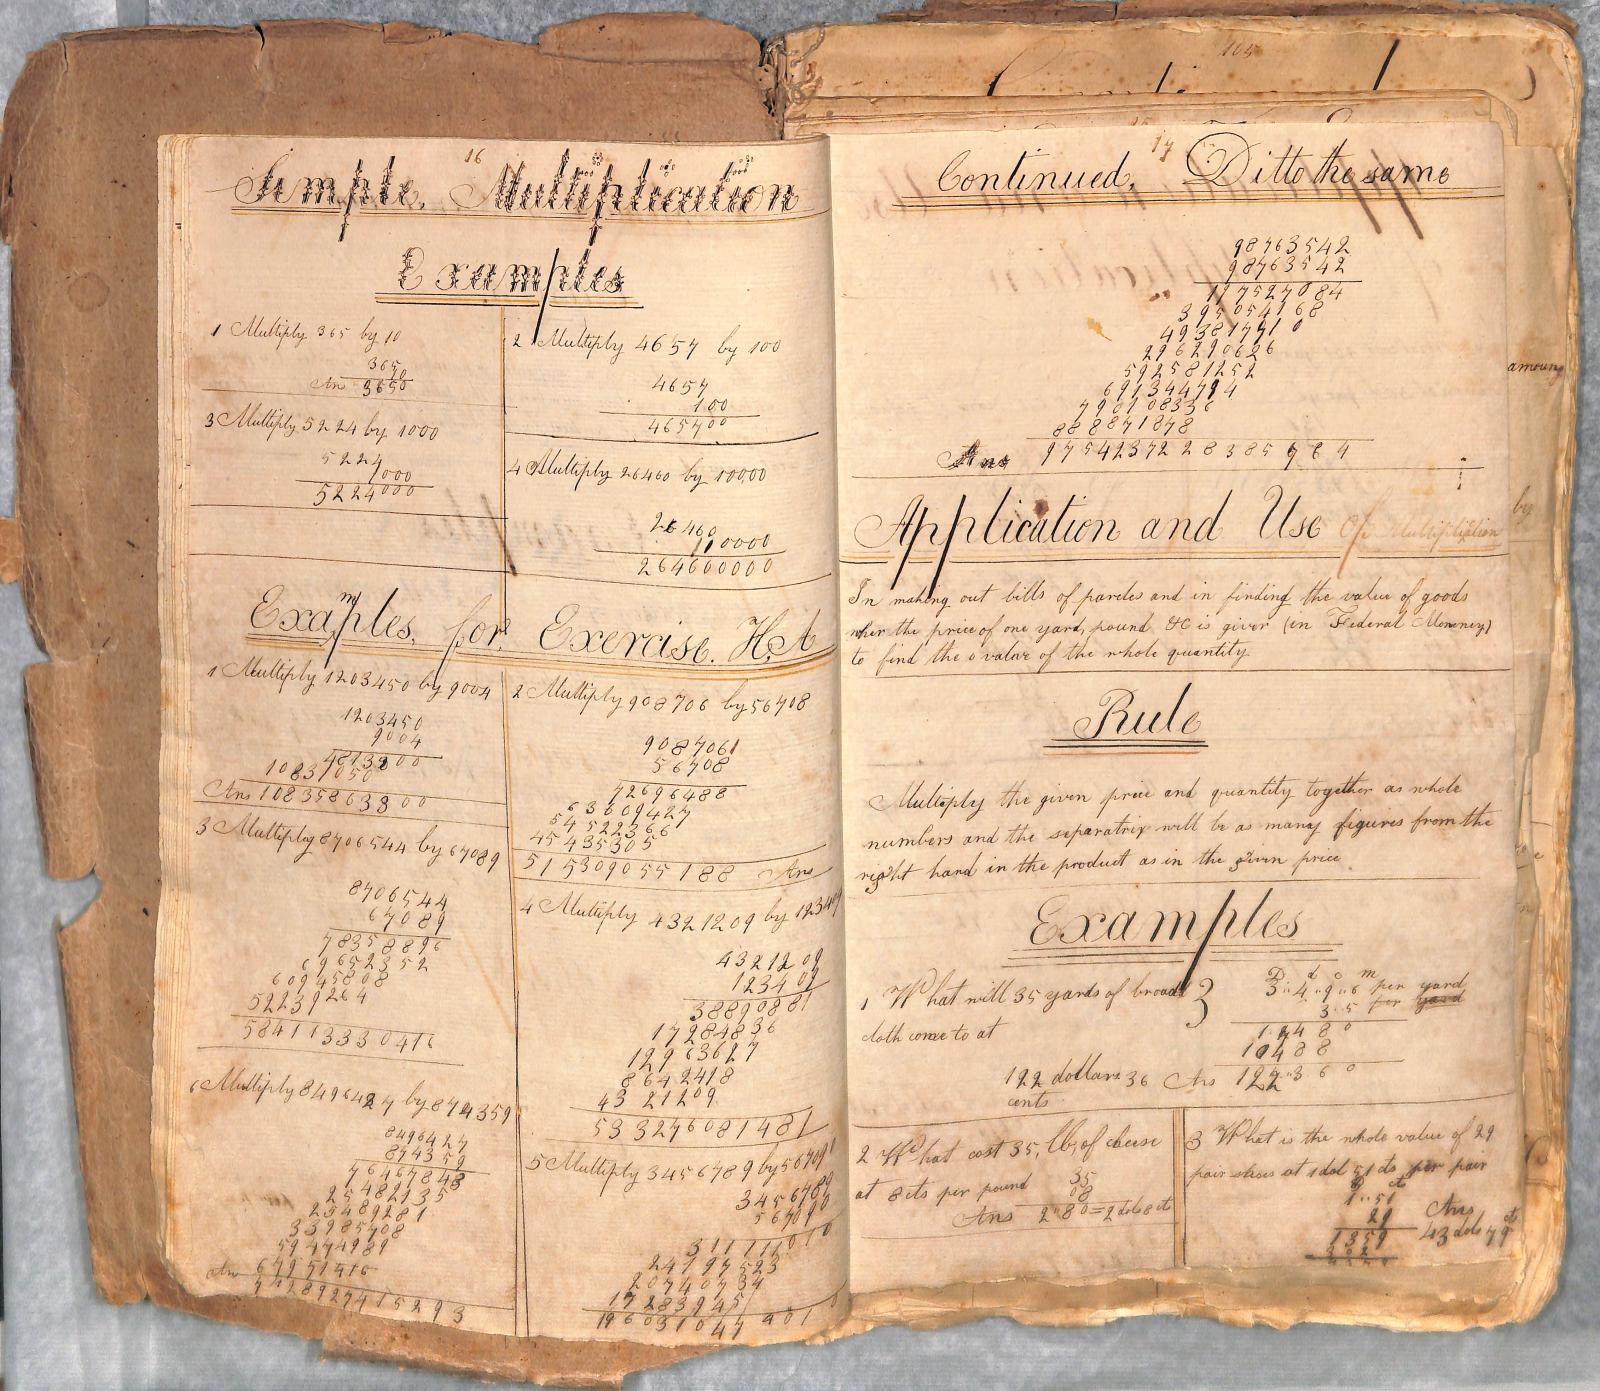 16
Simple, Multiplication
Examples
1 Multiply 365 by 10
3650
Ans 3650
2 Multiply 4657 by 100
4657
100
465700
3 Multiply 5224 by 1000
5224
000
5224000
4 Multiply 26460 by 10000
26460
10000
264600000
Examples, for, Exercise. H,A
1 Multiply 1203450 by 9004
1203450
9004
4813800
10831050
Ans 10835863800
2 Multiply 908706 by 56708
9087061
56708
72696488
63609427
54522366
45435305
515309055188 Ans
3 Multiply 8706544 by 67089
8706544
67089
78358896
69652352
60945808
52239264
584113330416
4 Multiply 4321209 by 123409
4321209
123409
38890881
17284836
12963627
8642418
4321209
533276081481
6 Multiply 8496427 by 874359
8496427
874359
76467843
25482135
25489281
33985708
59474989
Ans 67971416
7428927415293
5 Multiply 3456789 by 567090
3456789
567090
311111010
24197523
20740734
17283945
1960310474010
17
Continued, Ditto the same
98763542
98763542
197527084
395054168
493817710
296290626
592581252
691344794
790108336
888871878
Ans 9754237228385764
Application and Use Of Multiplication
In making out bills of parcles and in finding the value of goods
when the price of one yard, pound &c is given (in Federal Moneney)
to find the value of the whole quantity
Rule
Multiply the given price and quantity together as whole
numbers and the separatrix will be as many figures from the
right hand in the product as in the given price
Examples
1 What will 35 yards of broad
cloth come to at
D d c m
3"4"9"6 per yard
3.5 per yard
17480
10488
122 dollars 36 Ans 122"3 6 0
cents
2 What cost 35, lb, of cheese
at 8 cts per pound
35
08
Ans 2"80=2 dols 8 ct
3 What is the whole value of 29
pair shoes at 1 dol 51 cts per pair
D ct
1"51
29
1359
302
4379
Ans
43 dols 79 cts
105
amoung
by